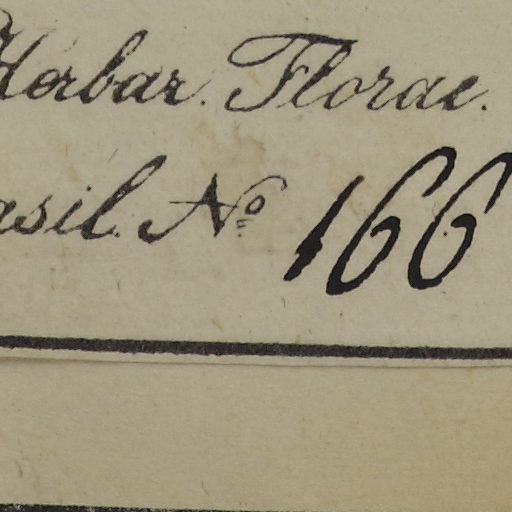 Herbar. Florae.
asil. Nº 166